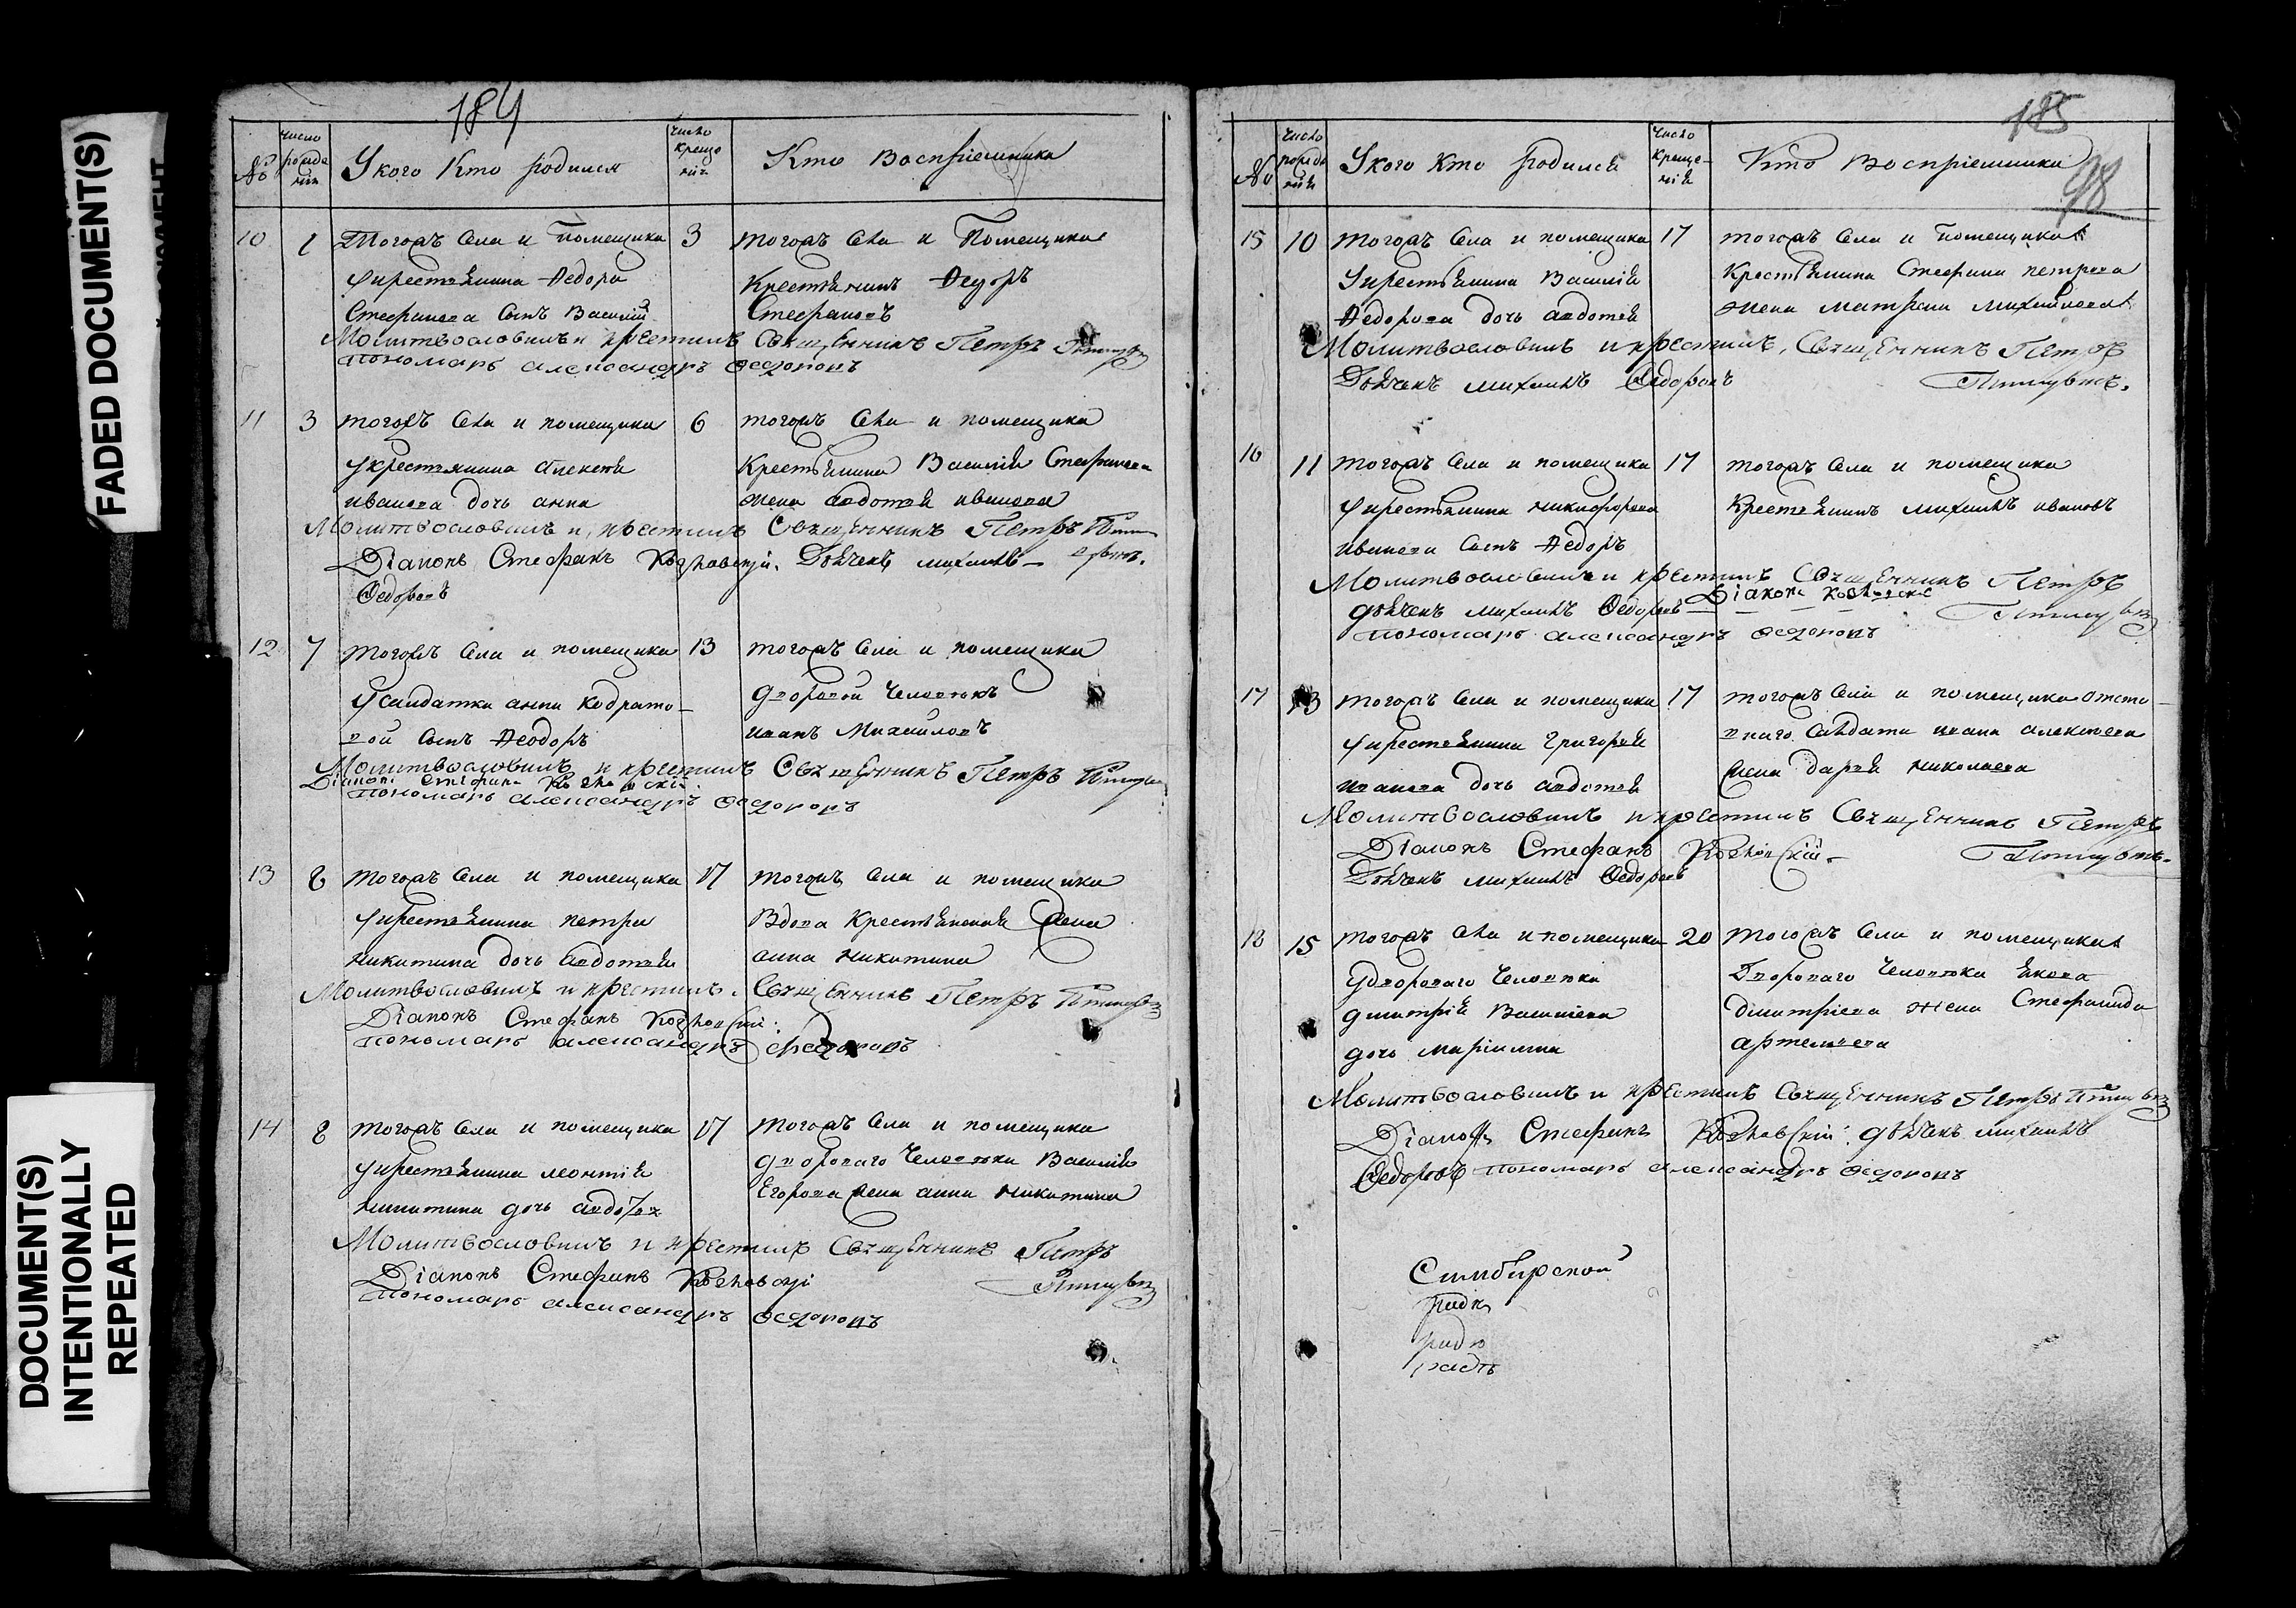 FADED DOCUMENT(S)
DOCUMENT(S)
INTENTIONALLY
REPEATED
184
№ число рожде нія Укого Кто родился число креще нія Кто Воспріемники
10 1 Тогожъ Села и Помещика 3 тогожъ Села и Помещика
укрестьянина Федора Крестьянинъ Федоръ
Стефанова Сынъ Василий Стефановъ
Молитвословилъ и крестилъ Священникъ Петръ
пономарь александръ федоровъ
11 3 тогожъ Села и помещика 6 тогожъ Села и помещика
укрестьянина алексея Крестьянина Василия Стефанова
иванова дочь анна жена авдотья иванова
Молитвословилъ и крестилъ Священникъ Петръ
Діаконъ Стефанъ Дьячекъ михаилъ
Федоровъ
12 7 тогожъ Села и помещика 13 тогожъ Села и помещика
усалдатки анны Кодрато-
вой Сынъ Феодоръ
дворовой Человекъ
иванъ Михайловъ
Молитвословилъ и крестилъ Священникъ Петръ
Діаконъ Стефанъ
пономарь александръ федоровъ
13 8 тогожъ Села и помещика 17 тогожъ Села и помещика
укрестьянина петра Вдова Крестьянская жена
никитина дочь авдотья анна никитина
Молитвословилъ и крестилъ Священникъ Петръ
Діаконъ Стефанъ
пономарь александръ федоровъ
14 8 тогожъ Села и помещика 17 тогожъ Села и помещика
укрестьянина леонтия дворового Человека Василия
никитина дочь авдотья Егорова жена анна никитина
Молитвословилъ и крестилъ Священникъ Петръ
Діаконъ Стефанъ
пономарь александръ федоровъ
185
98
№ число рожде нія Укого Кто родился число креще- нія Кто Воспріемники
15 10 тогожъ Села и помещика 17 тогожъ Села и помещика
укрестьянина Василия Крестьянина Стефана петрова
Федорова дочь авдотья жена матрена михайлова
Молитвословилъ и крестилъ Священникъ Петръ
Дьячекъ михаилъ Федоровъ
16 11 тогожъ Села и помещика 17 тогожъ Села и помещика
укрестьянина никифора Крестьянинъ михаилъ ивановъ
иванова Сынъ Федоръ
Молитвословилъ и крестилъ Священникъ Петръ
дьячекъ михаилъ Федоровъ Діаконъ
пономарь александръ федоровъ
17 13 тогожъ Села и помещика 17 тогожъ Села и помещика отста-
укрестьянина григория вного Салдата ивана алексеева
иванова дочь авдотья жена дарья николаева
Молитвословилъ и крестилъ Священникъ Петръ
Діаконъ Стефанъ
Дьячекъ михаилъ Федоровъ
18 15 тогожъ Села и помещика 20 тогожъ Села и помещика
удворового Человека Дворового Человека якова
дмитрия Васильева дмитриева жена Стефанида
дочь марианна артемьева
Молитвословилъ и крестилъ Священникъ Петръ
Діаконъ Стефанъ дьячекъ михаилъ
Федоровъ пономарь александръ федоровъ
Симбирской